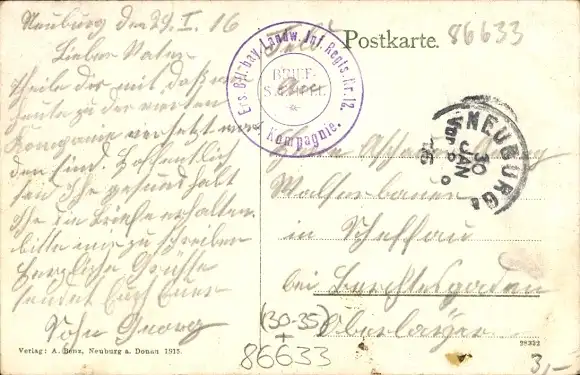 Neuburg den 29. I. 16
Lieber Vater
Theile dir mit daß wir
heute zu der vierten
Kompanie versetzt worden
sind. Hoffentlich
seid Ihr gesund
Ihr die Briefe erhalten.
bitte mir zu schreiben
Herzliche Grüsse
sendet Euch Euer
Sohn Georg
Verlag: A. Benz, Neuburg a. Donau 1915.
Feld
Postkarte.
86633
Ers. Btl. bay. Landw. Inf. Regts. Nr. 12.
BRIEF-
STEMPEL
Kompagnie.
NEUBURG
30
JAN
16
Herrn
in Scheffau
bei Berchtesgaden
Oberbayern
(30-35)
86633
28322
3,-